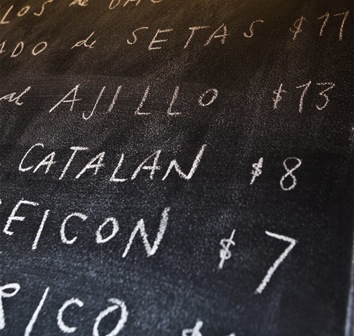 LOS de
ADO de SETAS $11
al AJILLO $13
CATALAN $8
EICON $7
RICO $